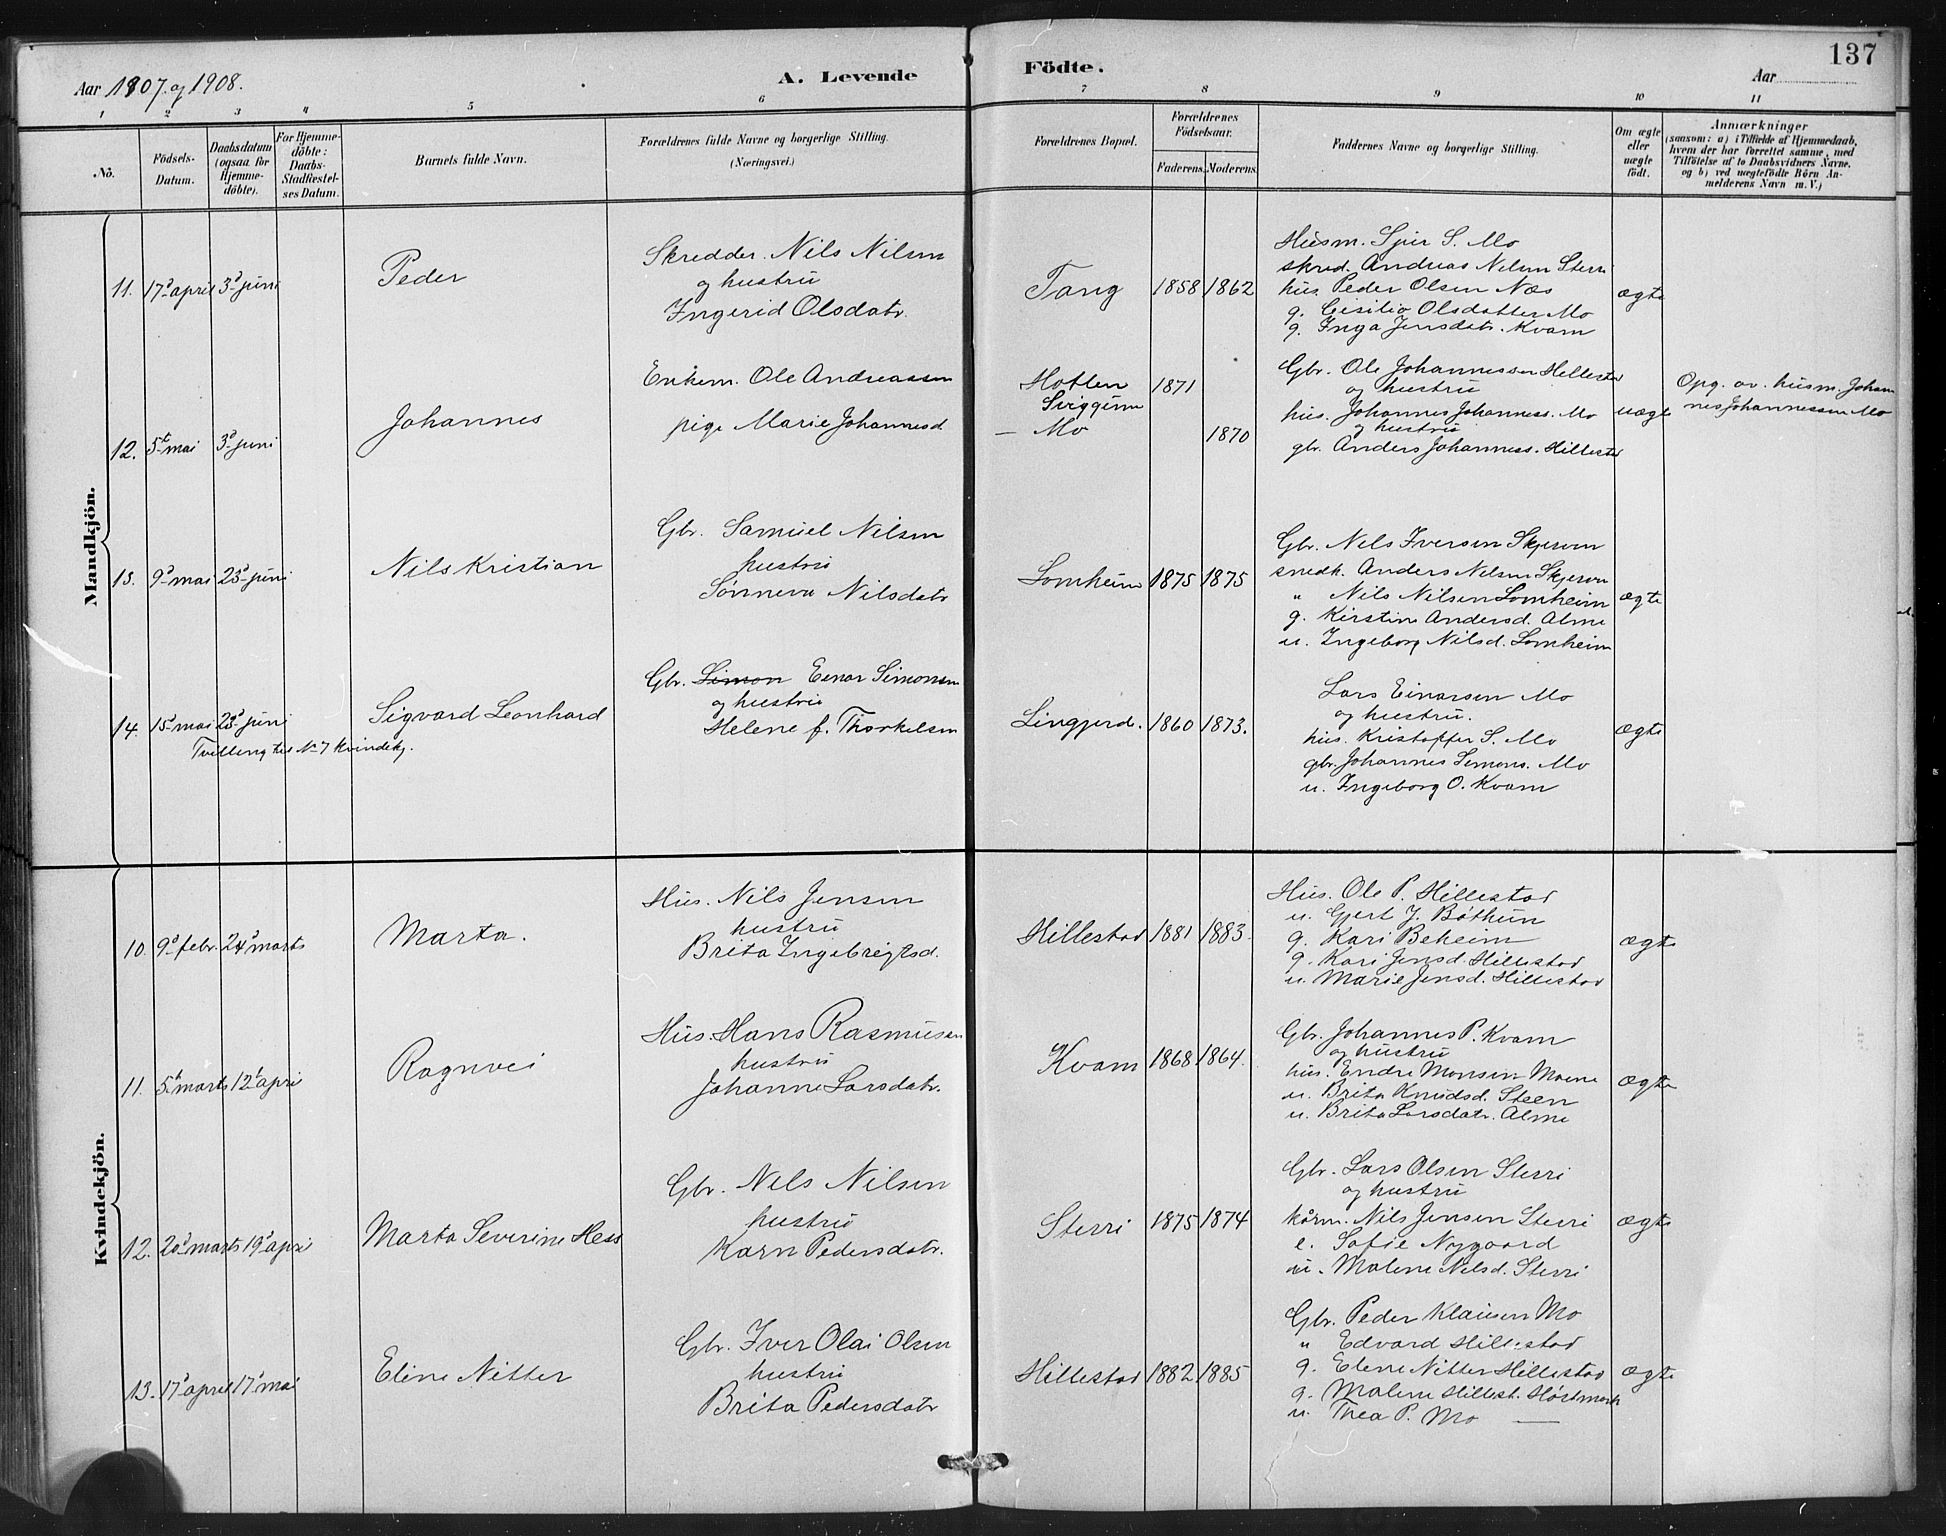 137
Aar 1907. og 1908.
A. Levende Födte.
Aar
1 2 3 4 5 6 7 8 9 10 11
No.
Födsels-
Datum.
Daabsdatum
(ogsaa for
Hjemme-
döbte).
For Hjemme-
döbte:
Daabs-
Stadfæstel-
ses Datum.
Barnets fulde Navn.
Forældrenes fulde Navne og borgerlige Stilling.
(Næringsvei.)
Forældrenes Bopæl.
Forældrenes
Födselsaar.
Faderens. Moderens.
Faddernes Navne og borgerlige Stilling.
Om ægte
eller
uægte
födt.
Anmærkninger
(saasom: a) i Tilfælde af Hjemmedaab,
hvem der har forrettet samme, med
Tilföielse af to Daabsvidners Navne,
og b) ved uægtefödte Börn An-
melderens Navn m. V.)
Mandkjön.
11. 17d april 3d juni
Peder
Skredder. Nils Nilsen
og hustru
Ingerid Olsdatr.
Tang
1858 1862
Husm. Sjur S. Mo
skred. Andreas Nilsen Sterri
hus. Peder Olsen Næs
g. Cisilia Olsdatter Mo
g. Inga Jensdatr. Kvam
ægte
12. 5t mai 3d juni
Johannes
Enkem. Ole Andreassen
pige Marie Johannesd
Hoflen
Sviggum
— Mo
1871
1870
Gbr. Ole Johannessen Hillestad
og hustru
hus. Johannes Johanness. Mo
og hustru
gbr. Anders Johanness. Hillestad
uægte
Opg. av. husm. Johan
nes Johannessen Mo
13. 9d mai 23d juni
Nils Kristian
Gbr. Samuel Nilsen
hustru
Sønneva Nilsdatr
Lomheim
1875 1875
Gbr. Nils Iversen Skjerven
snedk. Anders Nilsen Skjerven
" Nils Nilsen Lomheim
g. Kirstine Andersd. Alme
u. Ingeborg Nilsd. Lomheim
ægte
14. 15d mai 23d juni
Tvilling til No 7 kvindekj.
Sigvard Leonhard
Gbr. Simon Einar Simonsen
og hustru
Helene f. Thorkelsen
Lingjerd.
1860 1873.
Lars Einarsen Mo
og hustru.
hus. Kristoffer S. Mo
gbr. Johannes Simons. Mo
u. Ingeborg O. Kvam
ægte
Kvindekjön.
10. 9d febr. 24d marts
Marta.
Hus. Nils Jensen
hustru
Brita Ingebrigtsd.
Hillestad
1881 1883.
Hus. Ole P. Hillestad
u. Gjert J. Bøthun
g. Kari Beheim
g. Kari Jensd. Hillestad
u. Marie Jensd. Hillestad
ægte
11. 5t marts 12t april
Ragnvei
Hus. Hans Rasmusen
hustru
Johanne Larsdatr.
Kvam
1868 1864.
Gbr. Johannes P. Kvam
og hustru
hus. Endre Monsen Moene
u. Brita Knudsd. Steen
u. Brita Larsdatr. Alme
ægte
12. 20d marts 19d april
Marta Severine Hess
Gbr. Nils Nilsen
hustru
Karn Pedersdatr.
Sterri
1875 1874
Gbr. Lars Olsen Sterri
og hustru
kårm. Nils Jensen Sterri
e. Sofie Nygaard
u. Malene Nilsd. Sterri
ægte
13. 17d april 17d mai
Eline Nitter
Gbr. Iver Olai Olsen
hustru
Brita Pedersdatr
Hillestad
1882 1885
Gbr. Peder Klausen Mo
" Edvard Hillestad
g. Elene Nitter Hillestad
g. Malene Hillest. Høstmark
u. Thea P. Mo —
ægte